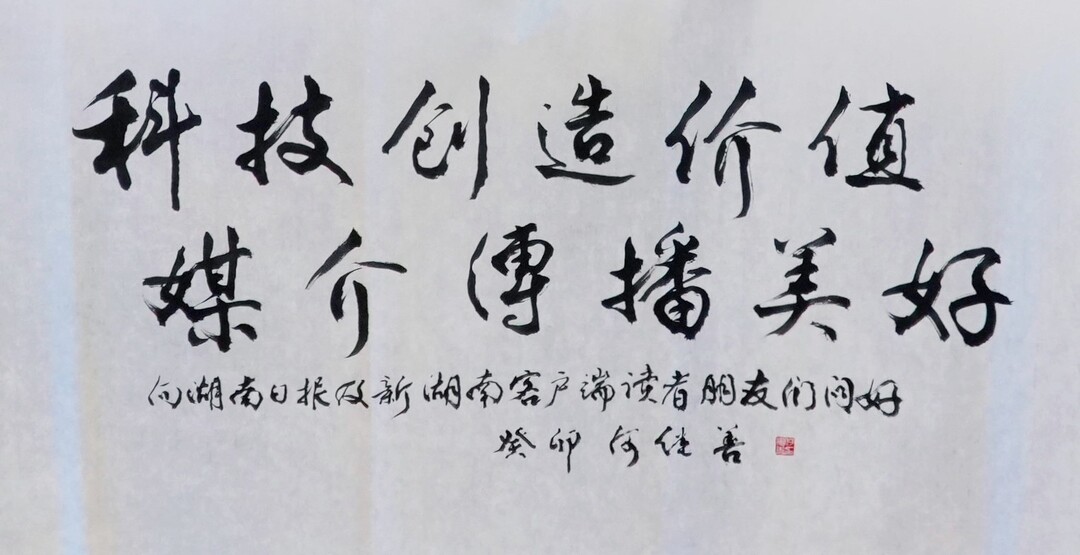 科技创造价值
媒介傳播美好
向湖南日报及新湖南客户端读者朋友们问好
癸卯 何继善